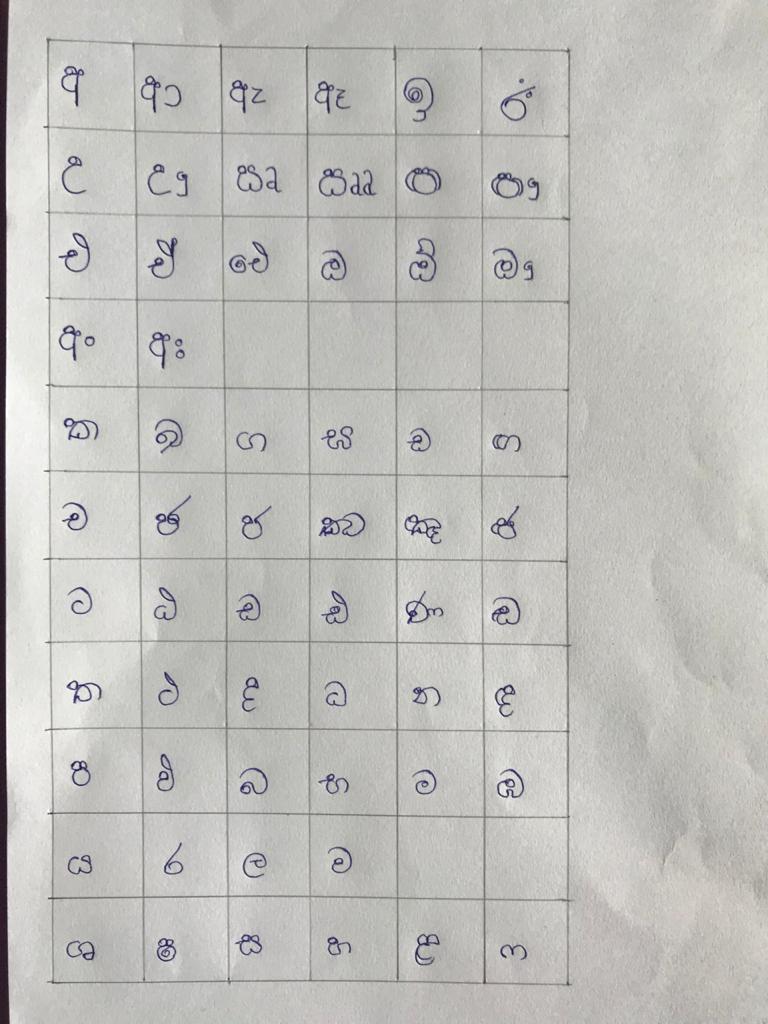 අ ආ ඇ ඈ ඉ ඊ
උ ඌ සෘ සෲ ඏ ඐ
එ ඒ ඓ ඔ ඕ ඖ
අං අඃ
ක ඛ ග ඝ ඞ ඟ
ච ඡ ජ ඣ ඤ ඦ
ට ඨ ඩ ඪ ණ ඬ
ත ථ ද ධ න ඳ
ප ඵ බ භ ම ඹ
ය ර ල ව
ශ ෂ ස හ ළ